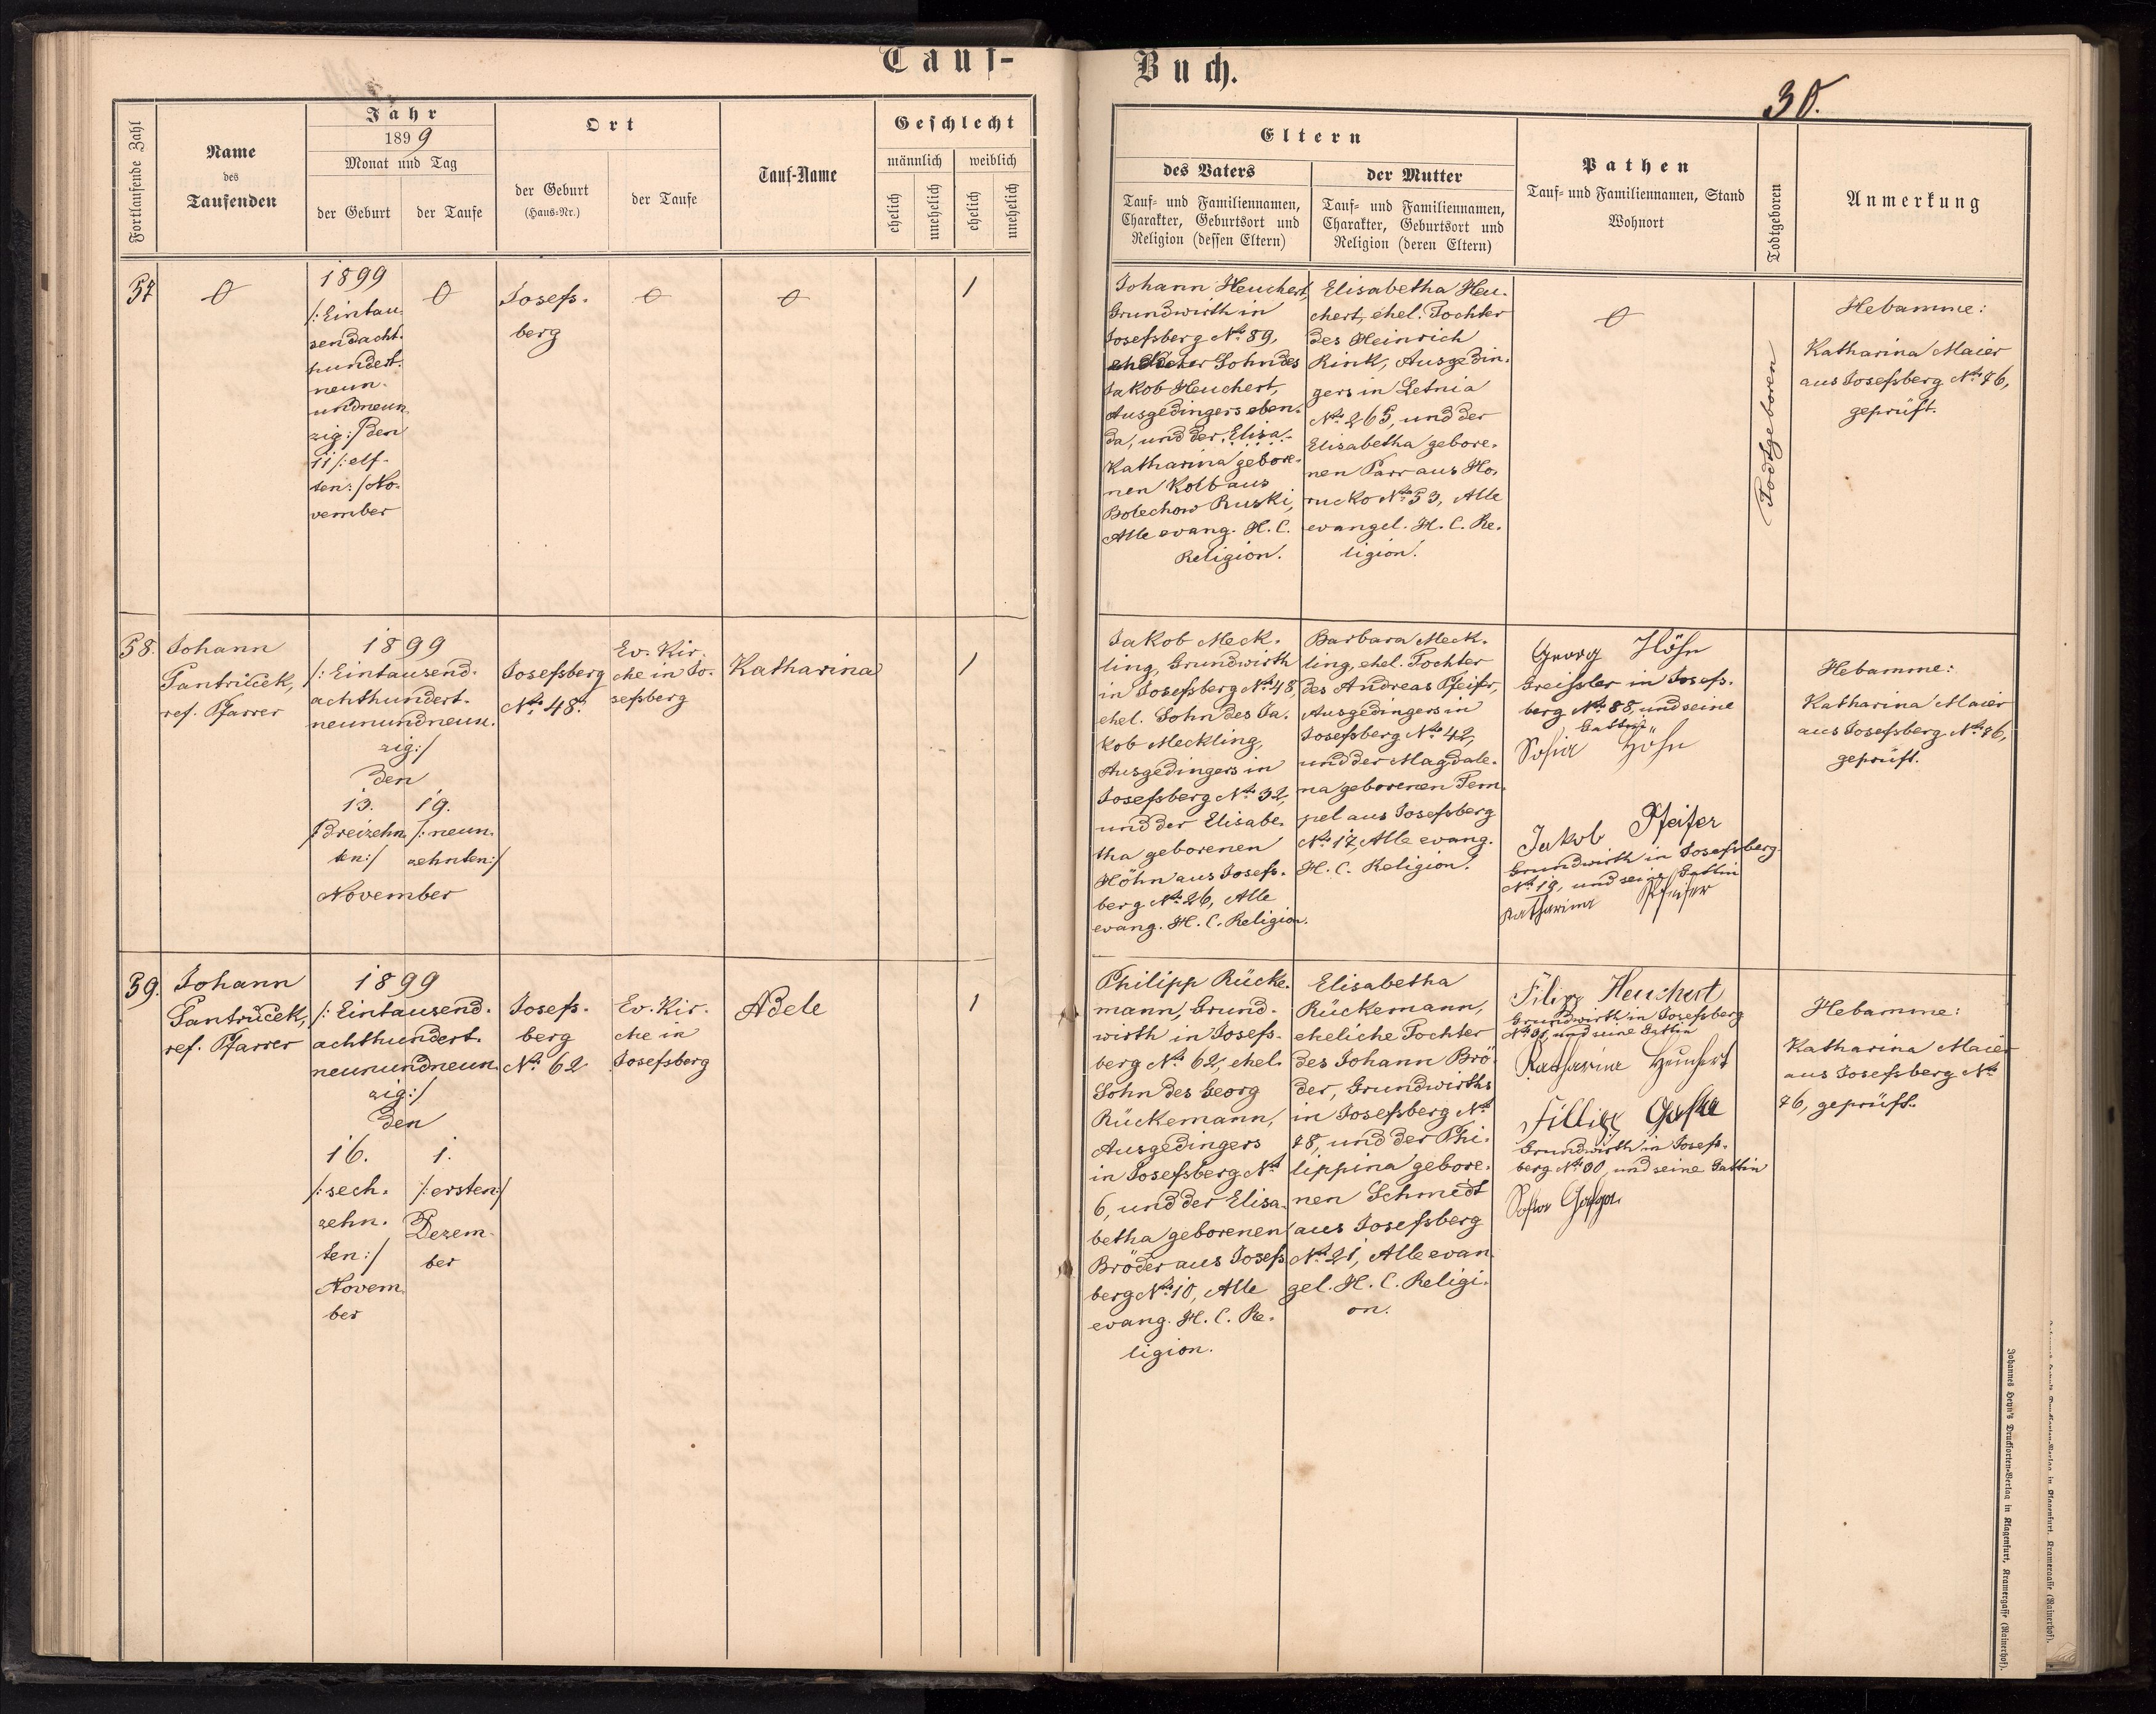 Tauf-
Buch.
30.
Fortlaufende Zahl
Name
des
Taufenden
Jahr
1899
Monat und Tag
der Geburt
der Taufe
Ort
der Geburt
(Haus-Nr.)
der Taufe
Tauf-Name
Geschlecht
männlich
weiblich
ehelich
unehelich
ehelich
unehelich
Eltern
des Vaters
Tauf- und Familiennamen,
Charakter, Geburtsort und
Religion (dessen Eltern)
der Mutter
Tauf- und Familiennamen,
Charakter, Geburtsort und
Religion (deren Eltern)
Pathen
Tauf- und Familiennamen, Stand
Wohnort
Todtgeboren
Anmerkung
57
1899
/:Eintau-
sendacht-
hundert-
neun-
undneun-
zig:/ den
11 /:elf-
ten:/ No-
vember
Josefs-
berg
1
Johann Heuchert,
Grundwirth in
Josefsberg No. 89,
ehelicher Sohn des
Jakob Heuchert,
Ausgedingers eben-
da, und der Elisa-
Katharina gebore-
nen Kolb aus
Bolechow Ruski,
Alle evang. H. C.
Religion.
Elisabetha Heu-
chert, ehel. Tochter
des Heinrich
Rink, Ausgedin-
gers in Letnia
No. 265, und der
Elisabetha gebore-
nen Parr aus Ho-
rucko No. 53, Alle
evangel. H. C. Re-
ligion.
Todtgeboren
Hebamme:
Katharina Maier
aus Josefsberg No. 76,
geprüft.
58.
Johann
Pantrůček,
ref. Pfarrer
1899
/:Eintausend-
achthundert-
neunundneun-
zig:/
den
13.
/:dreizehn-
ten:/
19.
/:neun-
zehnten:/
November
Josefsberg
No. 48.
Ev. Kir-
che in Jo-
sefsberg
Katharina
1
Jakob Meck-
ling, Grundwirth
in Josefsberg No. 48,
ehel. Sohn des Ja-
kob Meckling,
Ausgedingers in
Josefsberg No. 32,
und der Elisabe-
tha geborenen
Höhn aus Josefs-
berg No. 26, Alle
evang. H. C. Religion.
Barbara Meck-
ling, ehel. Tochter
des Andreas Pfeifer,
Ausgedingers in
Josefsberg No. 42,
und der Magdale-
na geborenen Tem-
pel aus Josefsberg
No. 17, Alle evang.
H. C. Religion.
Georg Höhn
Greissler in Josefs-
berg No. 88, und seine
Gattin
Sofia Höhn
Jakob Pfeifer
Grundwirth in Josefsberg
No. 19, und seine Gattin
Katharina Pfeifer
Hebamme:
Katharina Maier
aus Josefsberg No. 76,
geprüft.
59.
Johann
Pantrůček,
ref. Pfarrer
1899
/:Eintausend-
achthundert-
neunundneun-
zig:/
den
16.
/:sech-
zehn-
ten:/
Novem-
ber
1.
/:ersten:/
Dezem-
ber
Josefs-
berg
No. 62
Ev. Kir-
che in
Josefsberg
Adele
1
Philipp Rücke-
mann, Grund-
wirth in Josefs-
berg No. 62, ehel.
Sohn des Georg
Rückemann,
Ausgedingers
in Josefsberg No.
6, und der Elisa-
betha geborenen
Bröder aus Josefs-
berg No. 10, Alle
evang. H. C. Re-
ligion.
Elisabetha
Rückemann,
eheliche Tochter
des Johann Brö-
der, Grundwirths
in Josefsberg No.
78, und der Phi-
lippina gebore-
nen Schmidt
aus Josefsberg
No. 21, Alle evan-
gel. H. C. Religi-
on.
Filipp Heuchert
Grundwirth in Josefsberg
und seine Gattin
Katharina Heuchert
Fillipp
Grundwirth in Josefs-
berg und seine Gattin
Hebamme:
Katharina Maier
aus Josefsberg No.
76, geprüft.
Johannes Heyn's Drucksorten-Verlag in Klagenfurt, Kramergasse (Rainerhof).